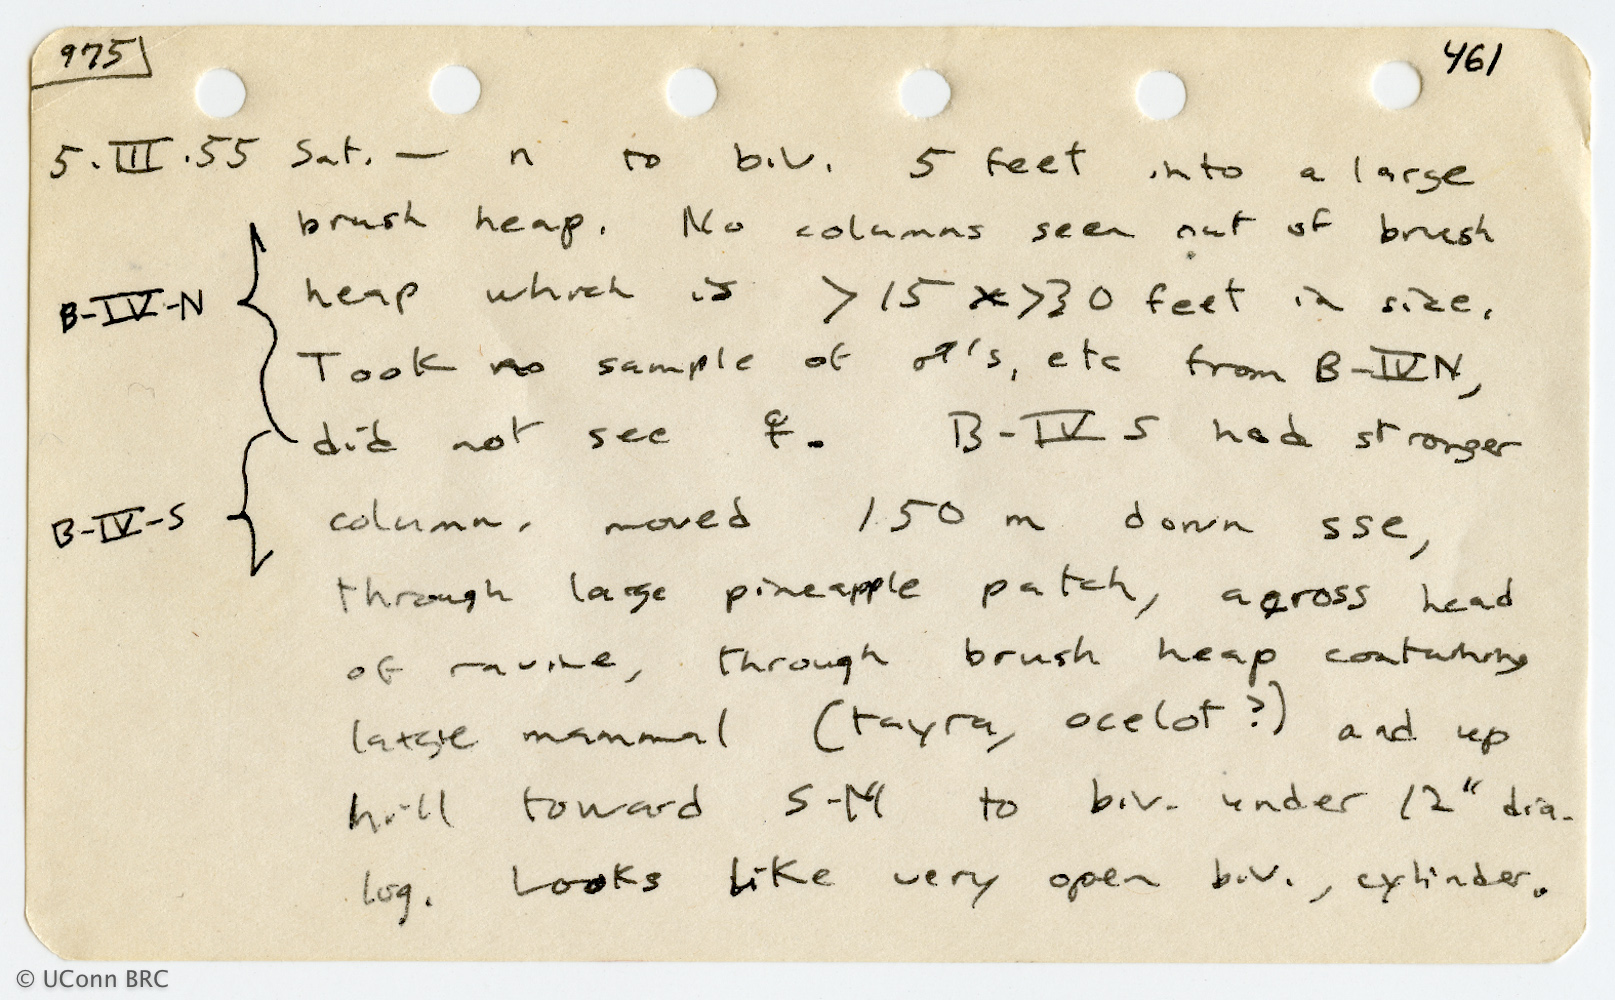 975 461
5.III.55 Sat. — n to biv. 5 feet into a large
brush heap. No columns seen out of brush
B-IV-N heap which is >15 x >30 feet in size.
Took no sample of ♂'s, etc from B-IVN,
did not see ☿. B-IV S had stronger
B-IV-S column. moved 150 m down sse,
through large pineapple patch, across head
of ravine, through brush heap containing
large mammal (tayra, ocelot?) and up
hill toward S-M to biv. under 12" dia.
log. Looks like very open biv., cylinder.
© UConn BRC